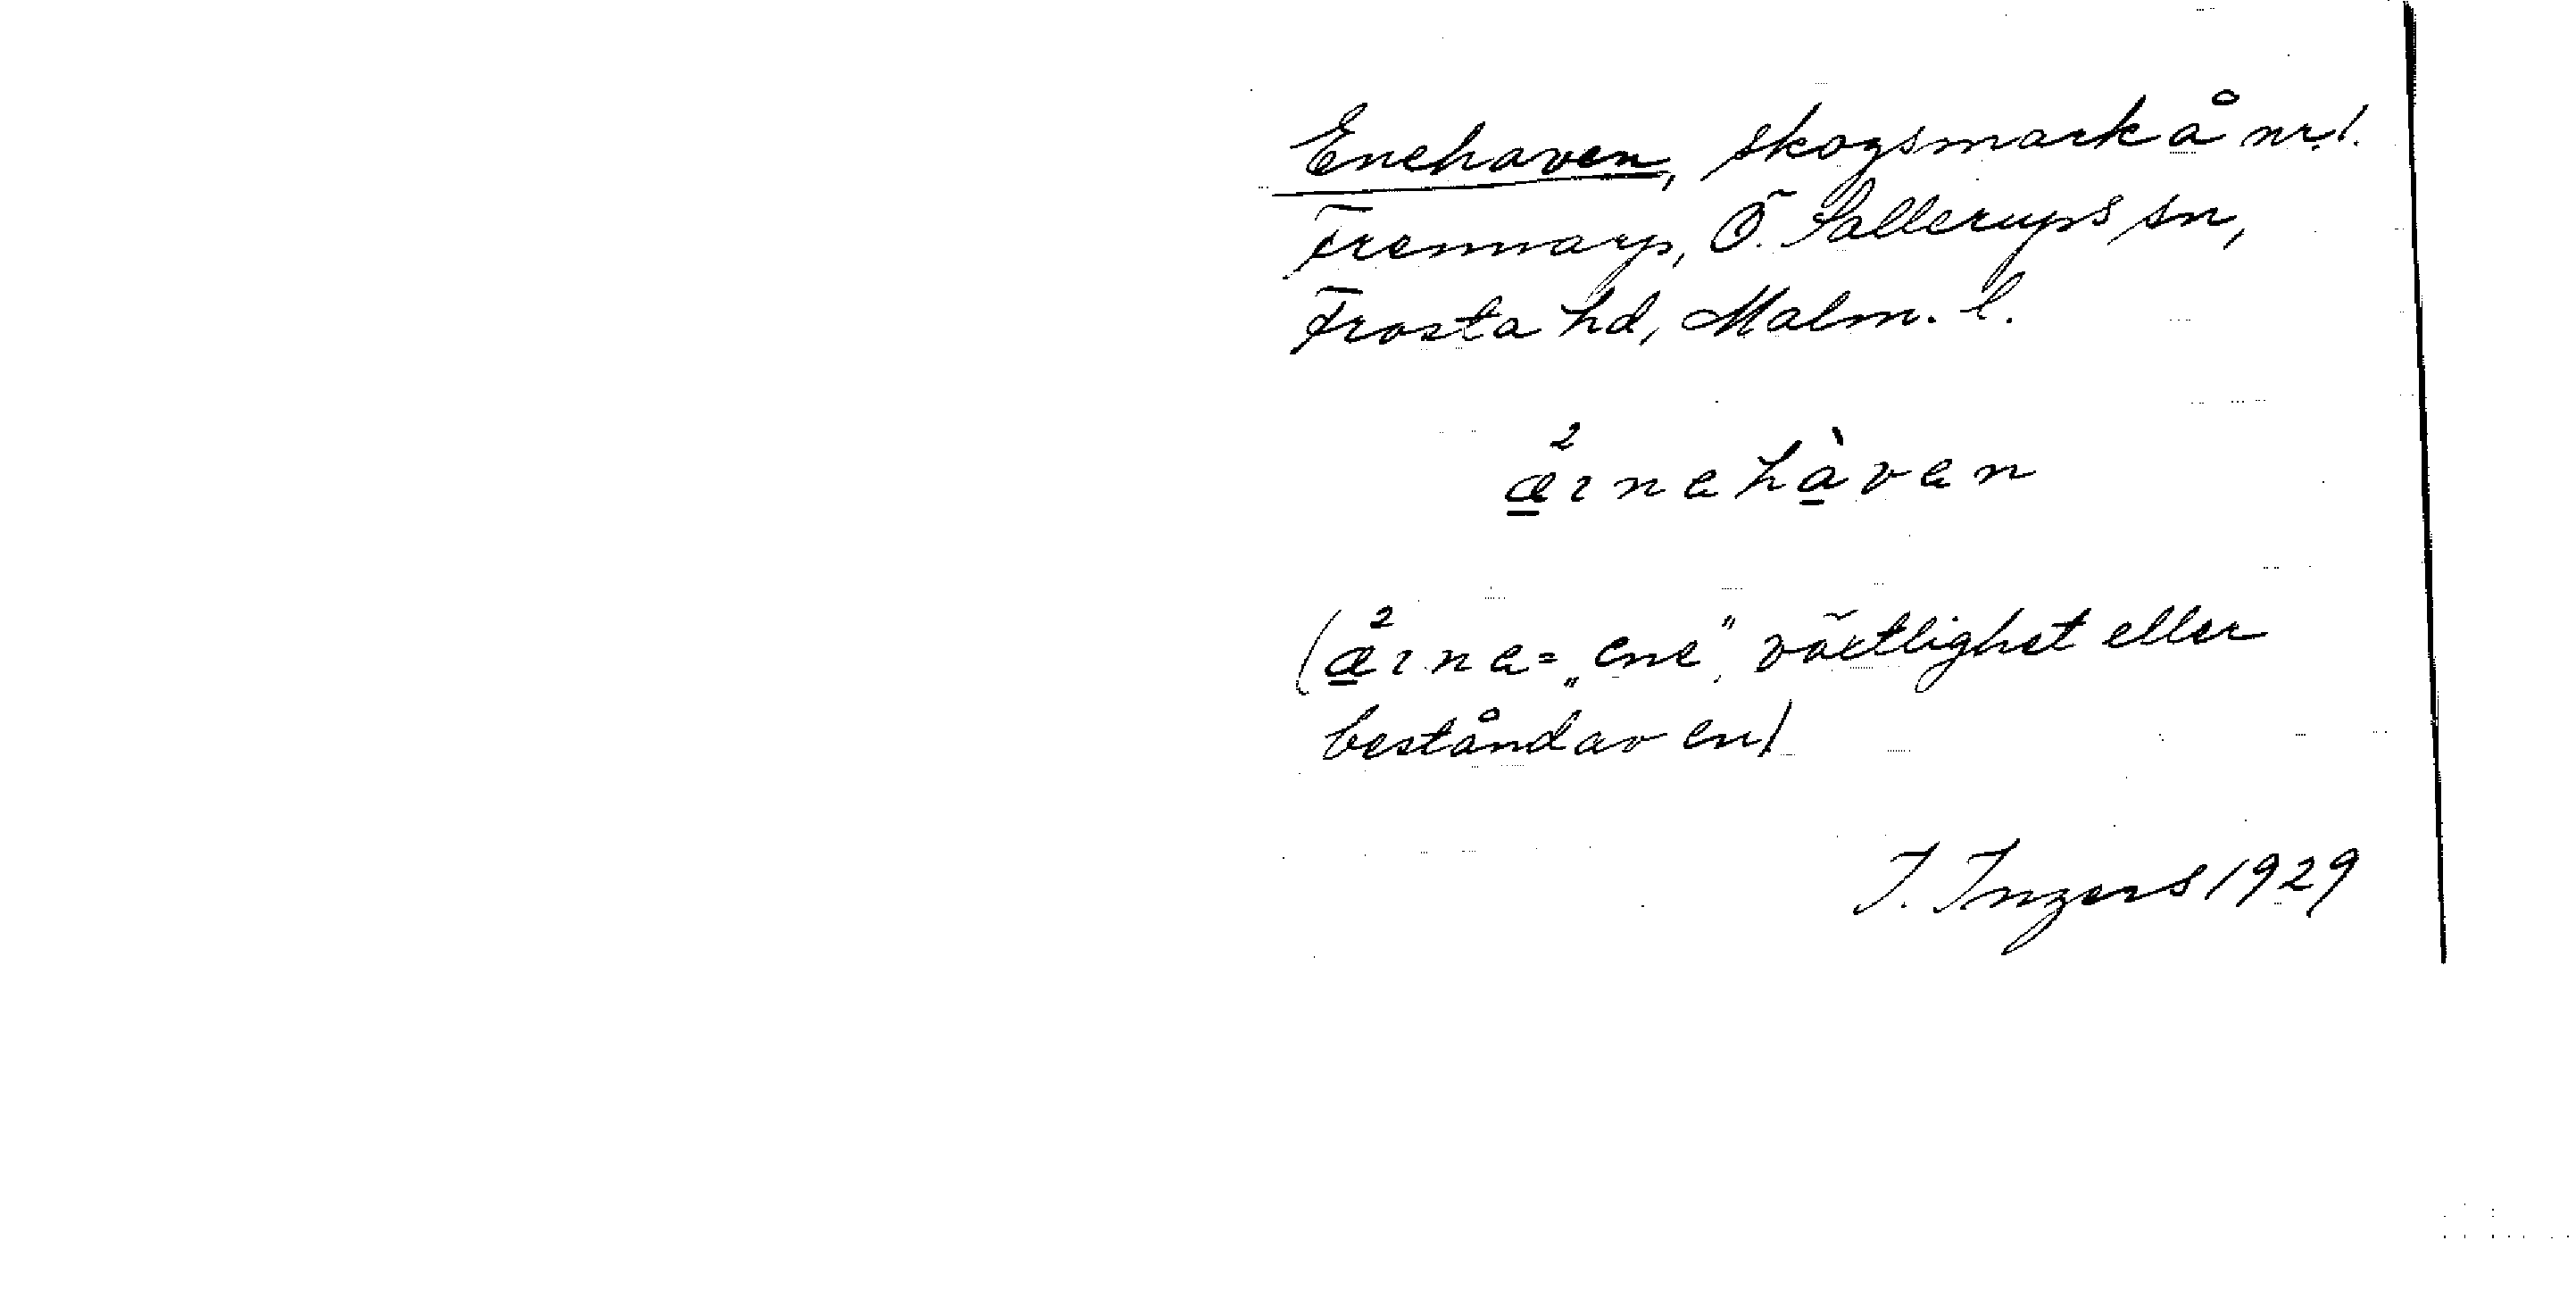 Enehaven, skogsmark å nr 1.
Fremmarp, Ö. Sallerups sn,
Frosta hd, Malm. l.
ǽ²ɪnehàven
(ǽ²ɪne = „ene”, växtlighet eller
bestånd av en)
I. Ingers 1929